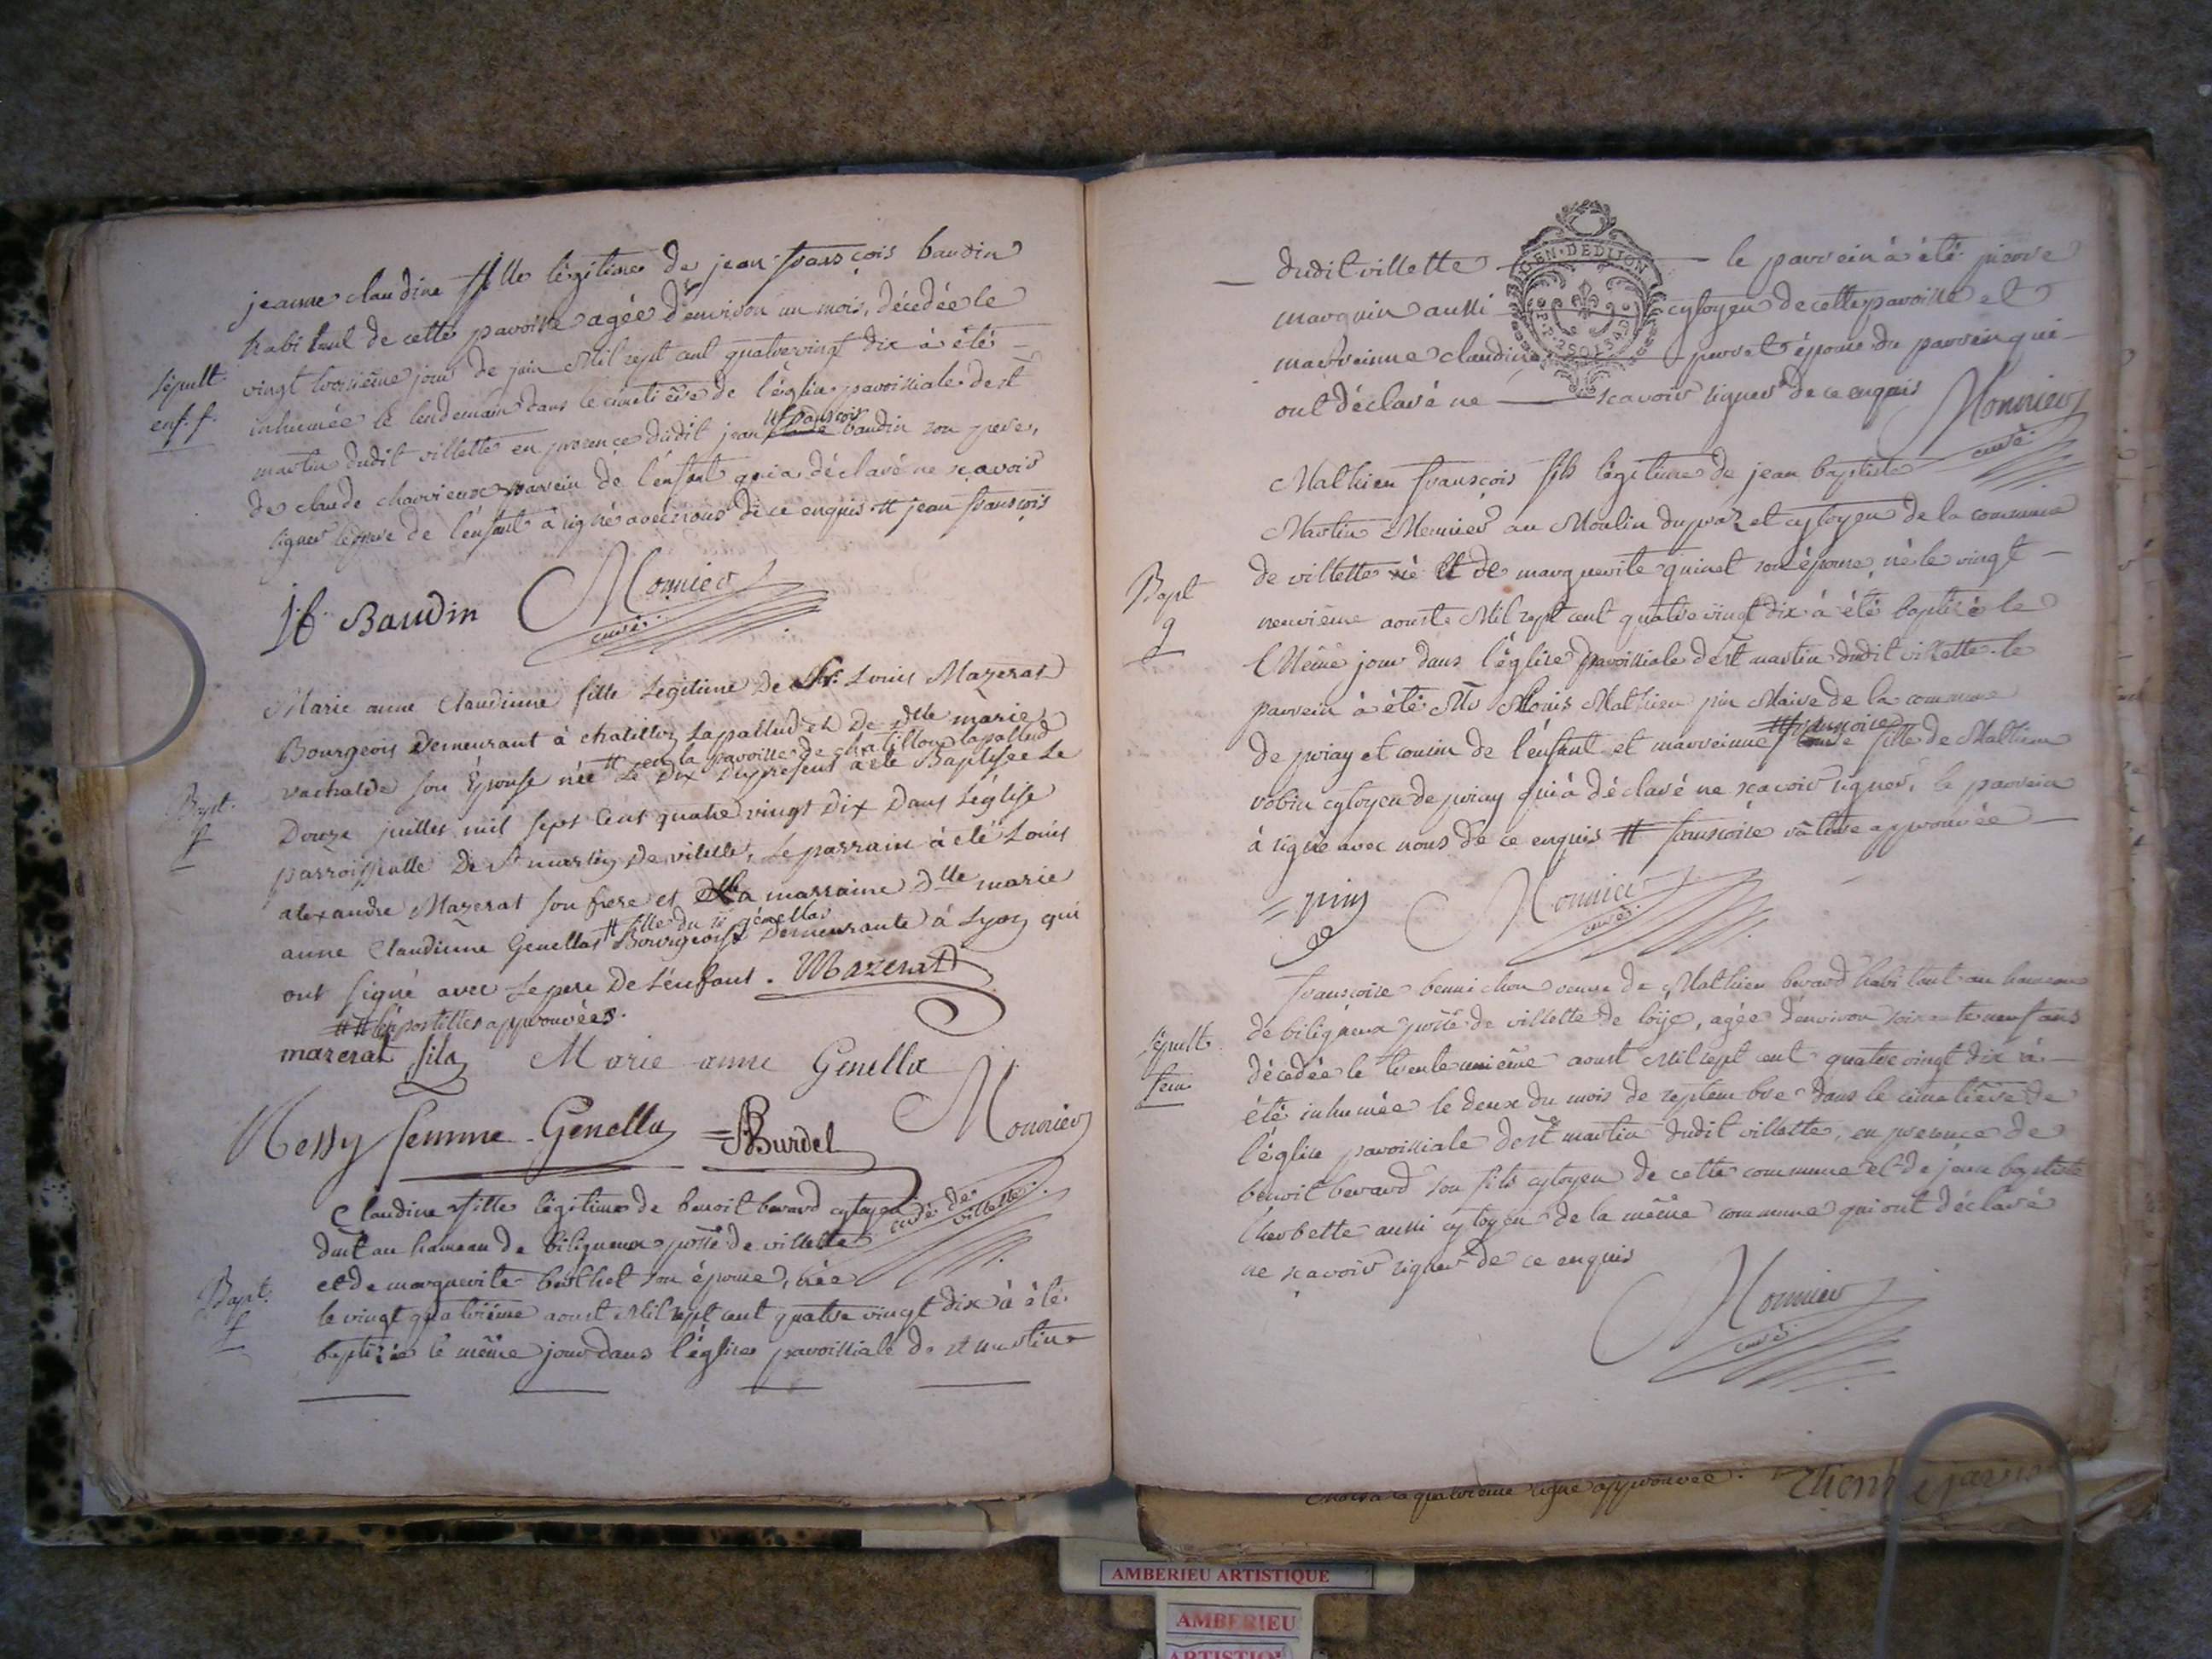 jeanne claudine fille légitime de jean françois baudin
habitant de cette paroisse agée d'environ un mois, décédée le
vingt troisième jour de juin Mil sept cent quatre vingt dix à été
Sépult.
enf. f.
inhumée le lendemain dans le cimetière de l'église paroissiale de st
martin dudit villette en présence dudit jean # françois baudin son père,
de claude charvieux parein de l'enfant qui a déclaré ne sçavoir
signer le père de l'enfant à signé avec nous de ce enquis # jean françois
jf Baudin Monnier
curé.
Marie anne Claudinne fille Légitime De Sr. Louis Mazerat
Bourgeois Demeurant à chatillon Lapallud et De dlle marie
vachalde son Épouse née # en la paroisse de chatillon lapallud Le Dix Du présent à été Baptisée Le
Bapt.
f
Douze juillet mil sept Cent quatre vingt Dix Dans Léglise
parroissialle De St martin De vilette, Le parrain à été Louis
alexandre Mazerat son frere et la marraine dlle marie
anne Claudinne Genellas # fille du sr génellas Bourgeoise Demeurante à Lyon qui
ont signé avec Le pere De L'enfant. Mazerat
## les postilles approuvées.
mazerat fils Marie anne Genella
Messy femme Genella Burdel Monnier
curé de villette.
Claudine fille légitime de benoit berard cytoyen
dud. au hameau de biligneux psse de villette
et de marguerite berthet son épouse, née
Bapt.
f
le vingt quatrième aoust Mil sept cent quatre vingt dix à été
baptizée le même jour dans l'église paroissiale de st martin
dudit villette le parrein à été pierre
GEN. DE DIJON
marguin aussi cytoyen de cette paroisse et
marreinne claudine perret épouse du parrein qui
ont déclaré ne sçavoir signer de ce enquis Monnier
curé.
Mathieu françois fils légitime de jean baptiste
Martin Meunier au Moulin du praz et cytoyen de la commune
Bapt
g
de villette né et de marguerite quinet son épouse, né le vingt
neuvième aoust Mil sept cent quatre vingt dix à été baptizé le
Même jour dans l'église paroissiale de st martin dudit villette le
parrein à été Mr Louis Mathieu pin Maire de la commune
de priay et cousin de l'enfant et marreinne # françoise fille de Mathieu
robin cytoyen de priay qui à déclaré ne sçavoir signer, le parrein
à signé avec nous de ce enquis # françoise râture approuvée
pin Monnier
curé.
françoise bennichon veuve de Mathieu berard habitant au hameau
Sépult.
fem.
de biligneux psse de villette de loije, agée d'environ soixante neuf ans
décédée le trente unième aoust Mil sept cent quatre vingt dix à
été inhumée le deux du mois de septembre dans le cimetière de
l'église paroissiale de st martin dudit villette, en présence de
benoit berard son fils cytoyen de cette commune et de jean baptiste
Cherbette aussi cytoyen de la même commune qui ont déclaré
ne sçavoir signer de ce enquis
Monnier
curé.
quatrième ligne approuvée.
AMBERIEU ARTISTIQUE
AMBERIEU
ARTISTIQUE